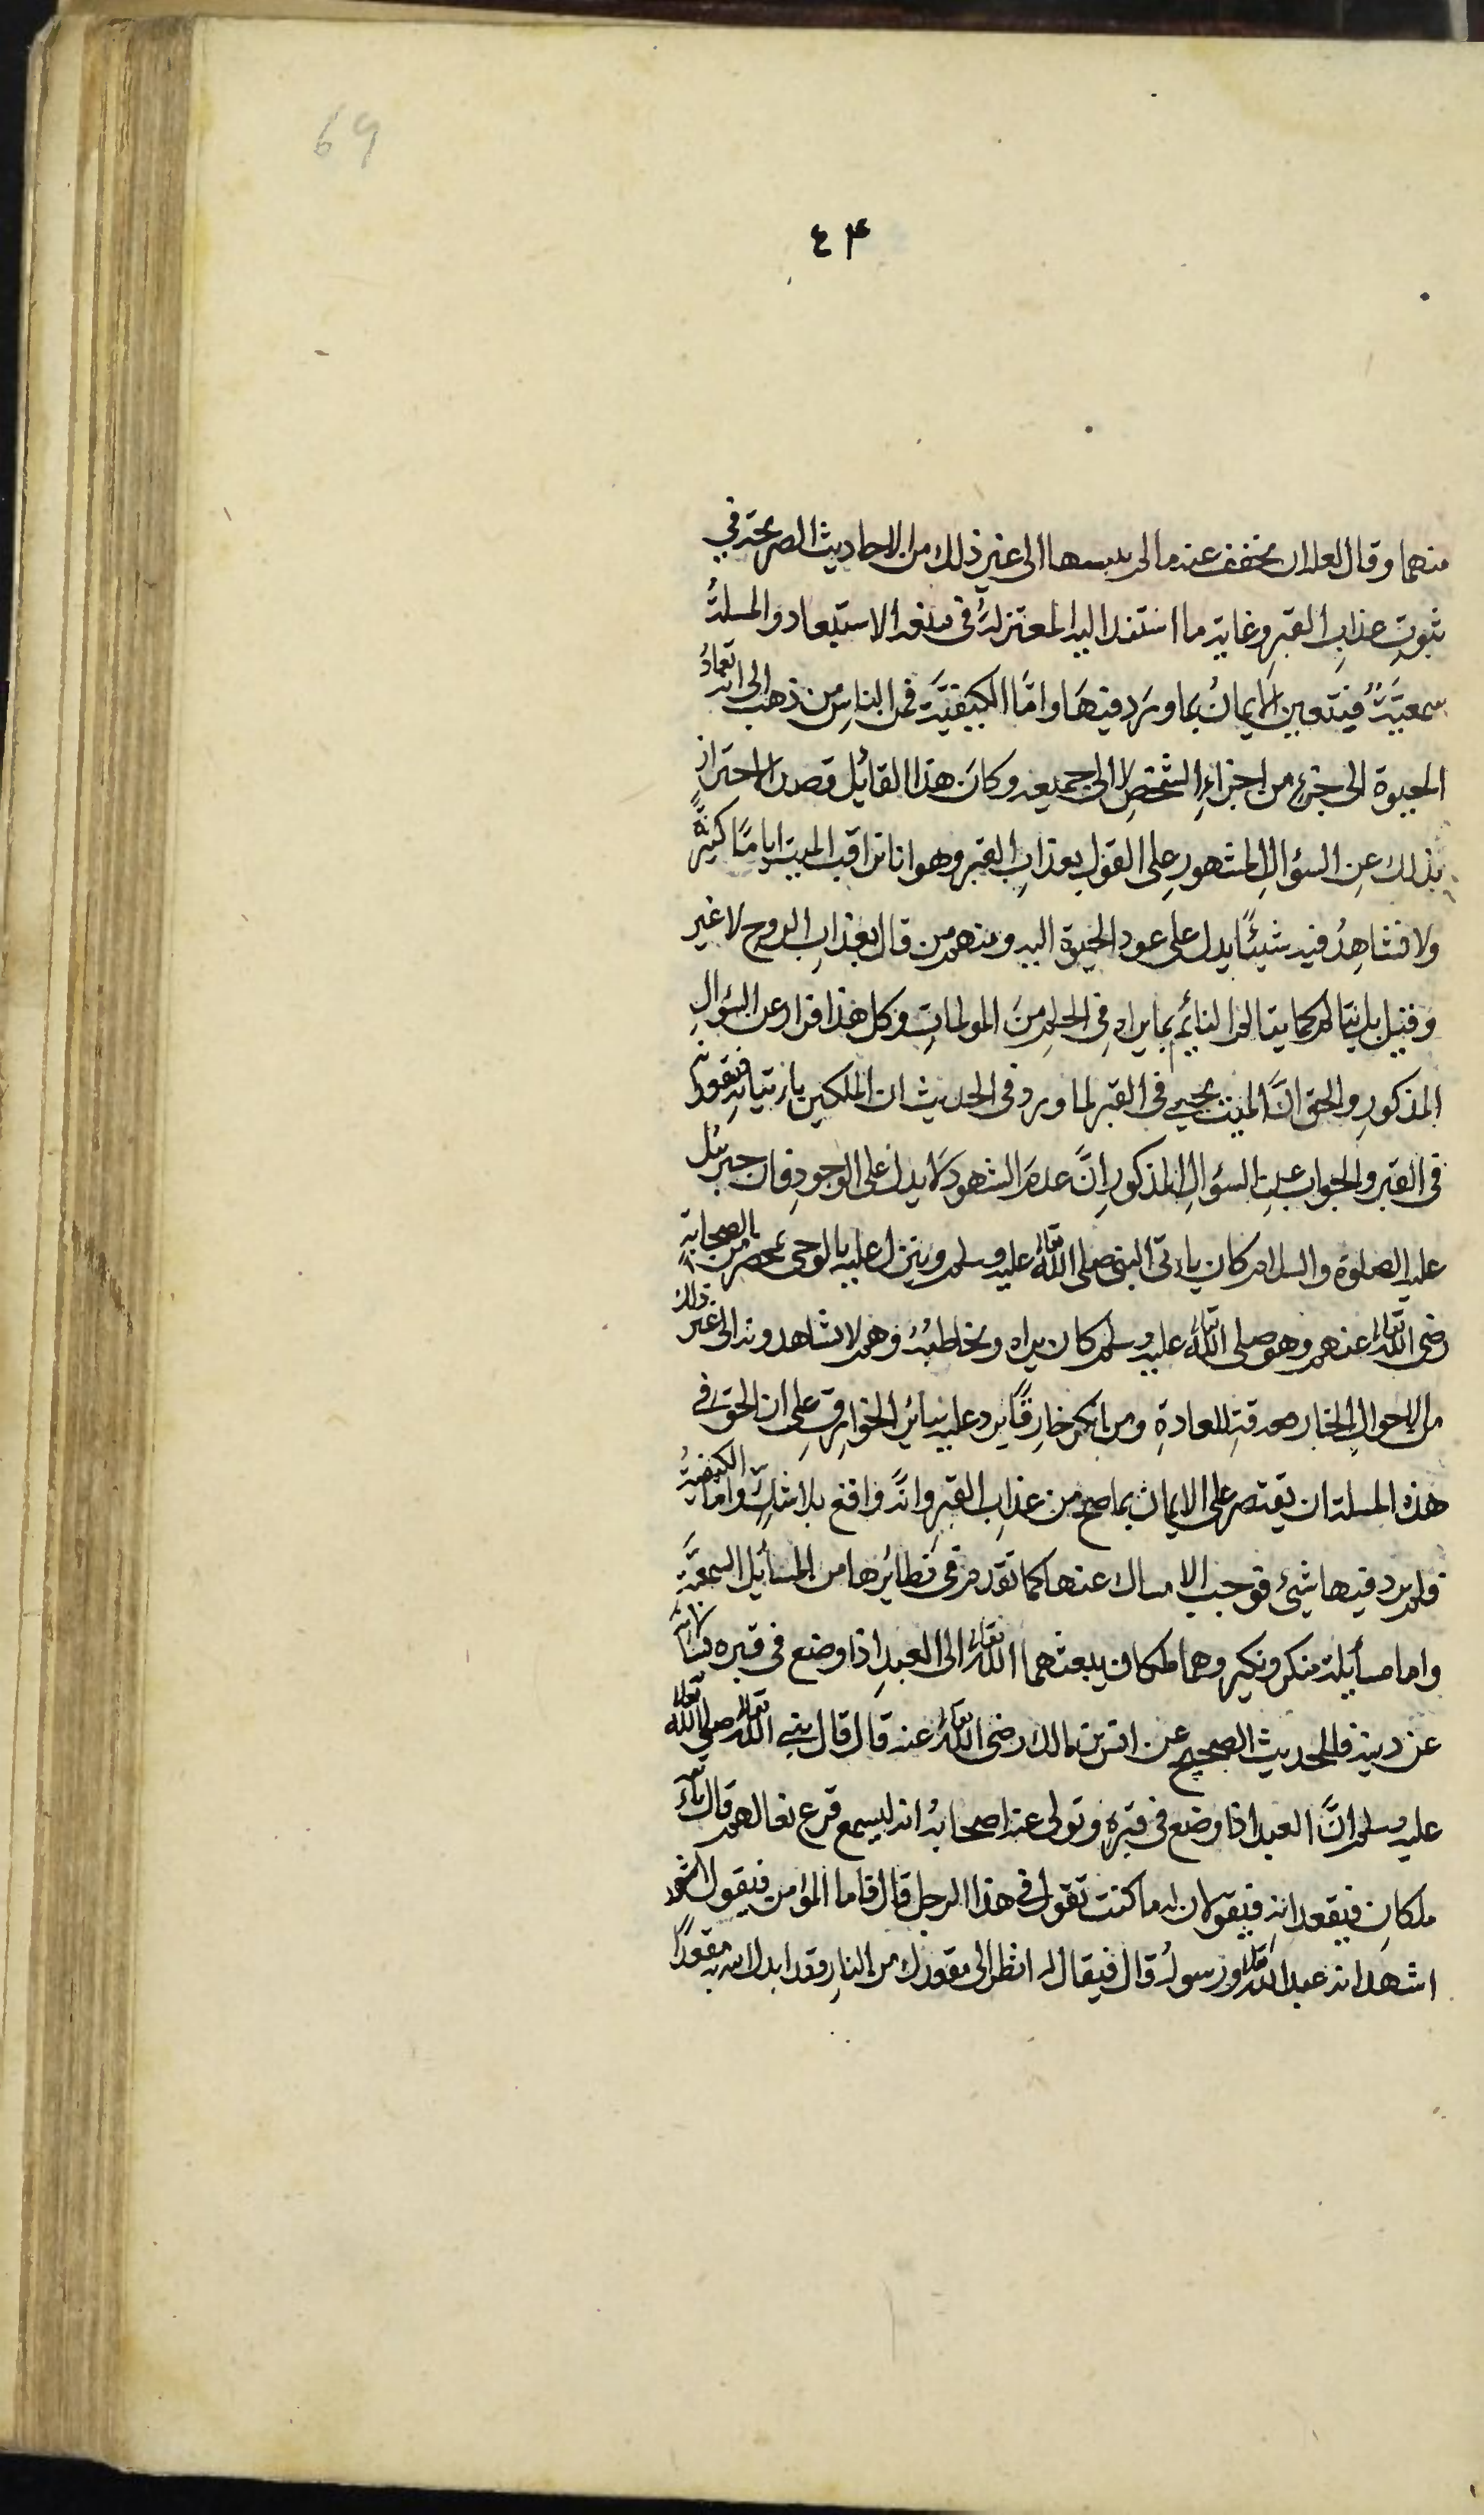 69
٤٣
منهما وقال لعله ان يخفف عنه ما لم ييبسا الى غير ذلك من الاحاديث الصريحة في
ثبوتِ عذابِ القبرِ وغاية ما استند اليه المعتزلةُ في منعه الاستبعاد والمسئلةُ
سمعيَّةٌ فيتعين الايمانُ بما ورد فيهَا وامَّا الكيفيَّة فمن الناسِ من ذهب الى انه تعادُ
الحيوة الى جزءٍ من اجزاءِ الشخصِ لا الى جميعه وكانَ هذا القائِل قصد الاحتراز
بذلك عنِ السؤالِ المشهورِ على القولِ بعذابِ القبر وهو انا نراقب الميت ايامًا كثيرةً
ولا نشاهِدُ فيه شيئًا يدل على عود الحيوة اليه ومنهم من قال بعذابِ الروح لا غير
وقيل بل يتالم كما يتالم النائِم بما يراه في الحلم منَ المولماتِ وكل هذا فرار عن السؤالِ
المذكورِ والحق انَّ الميت يحيي في القبر لما ورد في الحديث ان الملكين ياتيانه فيقعدانه
في القبر والجواب عن السؤالِ المذكورِ انَّ عدمَ الشهود لا يدل على الوجودِ فان جبرئيل
عليه الصلوة والسلام كان ياتى النبى صلى الله تعالى عليه وسلم وينزل عليه بالوحى بمحضرٍ من الصحابة
رضى الله تعالى عنهم وهو صلى الله تعالى عليه وسلم كان يراه ويخاطبهُ وهم لا يشاهدونه الى غير ذلك
من الاحوالِ الخارقةِ للعادةِ ومن انكر خارقًا يرد عليه سائِر الخوارقِ على ان الحق في
هذه المسئلة ان يقتصر على الايمان بما صح من عذابِ القبرِ وانَّه واقع بلا شكٍّ واما الكيفيةُ
فلم يرد فيها شيئ فوجب الامساك عنها كما تقدم في نظائِرها من المسائِل السمعيَّة
واما مسأيلة منكر ونكير وهما ملكان يبعثهما الله تعالى الى العبدِ اذا وضع في قبره
عن دينه فالحديث الصحيح عن انس بن مالك رضى الله تعالى عنه قال قال نبي الله تعالى صلى الله تعالى
عليه وسلم انَّ العبد اذا وضع في قبرهِ وتولى عنه اصحابهُ انه ليسمع قرع نعالهم قال ياتيه
ملكانِ فيقعدانه فيقولان له ما كنت تقول في هذا الرجل قال فاما المؤمن فيقول
اشهد انه عبد الله تعالى ورسولُه قال فيقال له انظر الى مقعدك من النارِ فقد ابدلك الله به مقعدًا